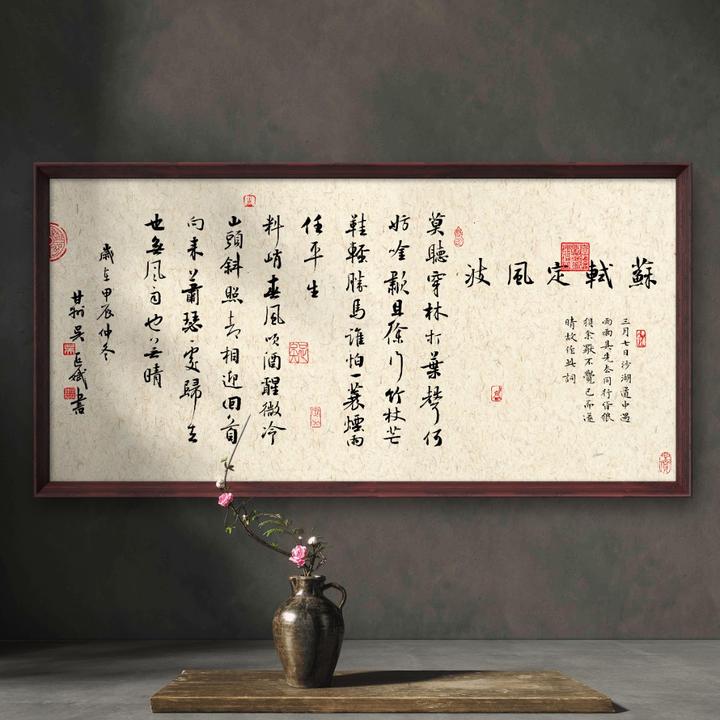 蘇軾定風波
三月七日沙湖道中遇
雨雨具先去同行皆狼
狽余獨不覺已而遂
晴故作此詞
莫聽穿林打葉聲何
妨吟歗且徐行竹杖芒
鞋輕勝馬誰怕一蓑煙雨
任平生
料峭春風吹酒醒微冷
山頭斜照却相迎回首
向來蕭瑟處歸去
也無風雨也無晴
歲在甲辰仲冬
甘州吳斌書